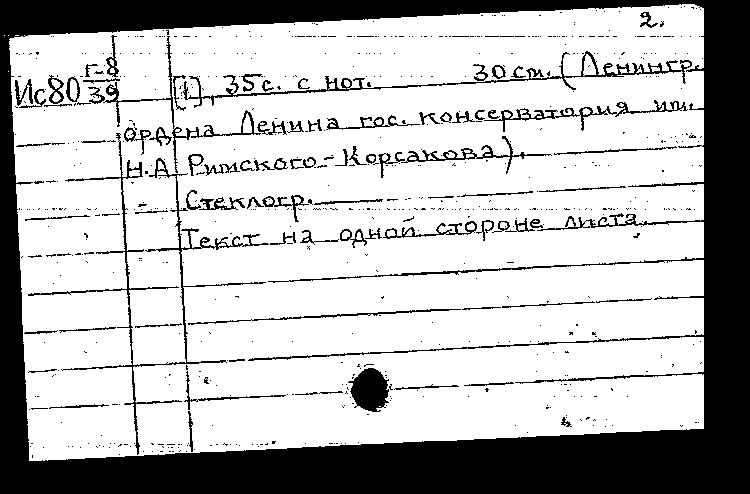 2.
Ис80 Г-8/39 [1], 35с. с нот. 30 cm. (Ленингр.
ордена Ленина гос. консерватория им.
Н.А Римского-Корсакова).
- Стеклогр.
Текст на одной стороне листа.